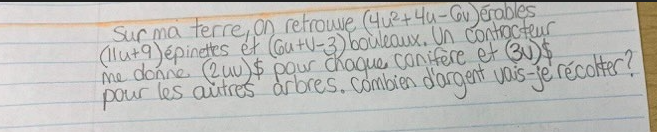 Sur ma terre, on retrouve (4u²+4u-6v) érables
(11u+9) épinettes et (6u+v-3) bouleaux. Un contracteur
me donne (2uv)$ pour chaque conifère et (3v)$
pour les autres arbres. Combien d'argent vais-je récolter?